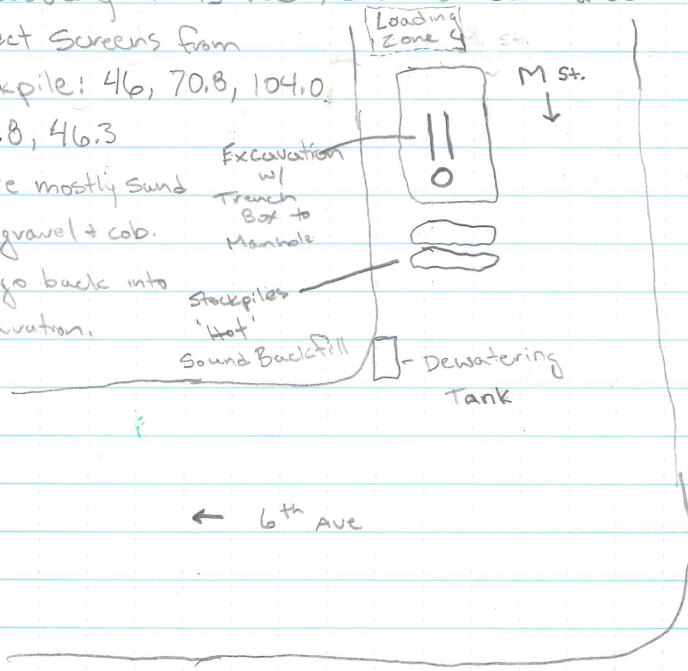 ect Screens from
kpile: 46, 70.8, 104.0
.8, 46.3
e mostly Sand
gravel + cob.
go back into
vation.
Loading
Zone
St.
M St.
↓
Excavation
w/
Trench
Box to
Manhole
Stockpiles
'Hot'
Sound Backfill
Dewatering
Tank
← 6th Ave